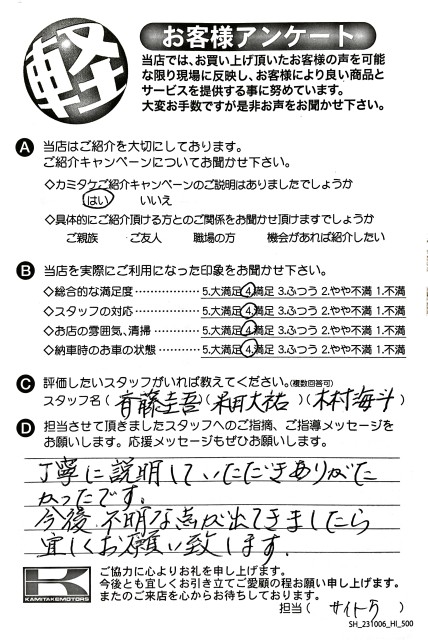 軽
お客様アンケート
当店では、お買い上げ頂いたお客様の声を可能
な限り現場に反映し、お客様により良い商品と
サービスを提供する事に努めています。
大変お手数ですが是非お声をお聞かせ下さい。
A 当店はご紹介を大切にしております。
ご紹介キャンペーンについてお聞かせ下さい。
◇カミタケご紹介キャンペーンのご説明はありましたでしょうか
はい いいえ
◇具体的にご紹介頂ける方とのご関係をお聞かせ頂けますでしょうか
ご親族 ご友人 職場の方 機会があれば紹介したい
B 当店を実際にご利用になった印象をお聞かせ下さい。
◇総合的な満足度 5.大満足 4.満足 3.ふつう 2.やや不満 1.不満
◇スタッフの対応 5.大満足 4.満足 3.ふつう 2.やや不満 1.不満
◇お店の雰囲気、清掃 5.大満足 4.満足 3.ふつう 2.やや不満 1.不満
◇納車時のお車の状態 5.大満足 4.満足 3.ふつう 2.やや不満 1.不満
C 評価したいスタッフがいれば教えてください。(複数回答可)
スタッフ名(斉藤圭吾)(米田大祐)(木村海斗)
D 担当させて頂きましたスタッフへのご指摘、ご指導メッセージを
お願いします。応援メッセージもぜひお願いします。
丁寧に説明していただきありがた
かったです。
今後、不明な点が出てきましたら
宜しくお願い致します。
K
KAMITAKEMOTORS
ご協力に心よりお礼を申し上げます。
今後とも宜しくお引き立てご愛顧の程お願い申し上げます。
またのご来店を心からお待ちしております。
担当(サイトウ)
SH_231006_HI_500